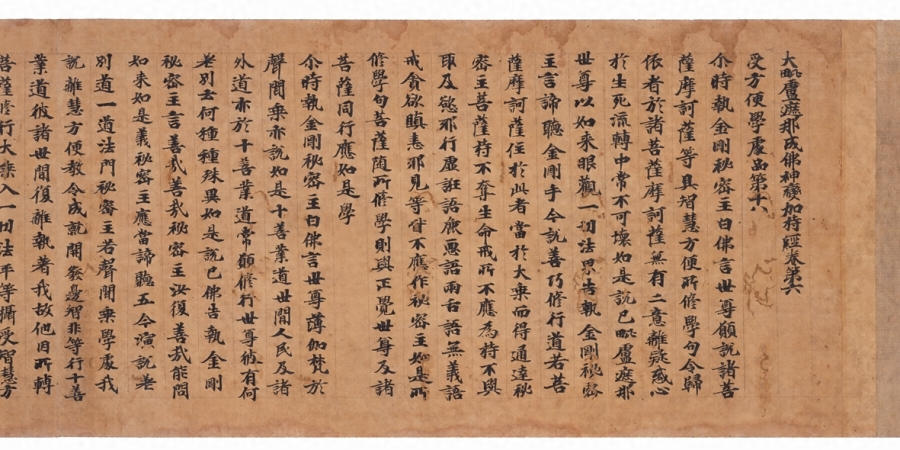 大毗盧遮那成佛神變加持經卷第六
受方便學處品第十八
尒時執金剛秘密主白佛言世尊願說諸菩
薩摩訶薩等具智慧方便所修學句令歸
依者於諸菩薩摩訶薩無有二意離疑惑心
於生死流轉中常不可壞如是說已毗盧遮那
世尊以如來眼觀一切法界告執金剛秘密
主言諦聽金剛手今說善巧修行道若菩
薩摩訶薩住於此者當於大乘而得通達秘
密主菩薩持不奪生命戒所不應為持不與
取及慾邪行虛誑語麁惡語兩舌語無義語
戒貪欲瞋恚邪見等皆不應作秘密主如是所
修學句菩薩随所修學則與正覺世尊及諸
菩薩同行應如是學
尒時執金剛秘密主白佛言世尊薄伽梵於
聲聞乘亦說如是十善業道世間人民及諸
外道亦於十善業道常願修行世尊彼有何
差別云何種種殊異如是說已佛告執金剛
秘密主言善哉善哉秘密主汝復善哉能問
如來如是義秘密主應當諦聽吾今演說差
別道一道法門秘密主若聲聞乘學處我
說離慧方便教令成就開發邊智非等行十善
業道彼諸世間復離執著我故他因所轉
菩薩修行大乘入一切法平等攝受智慧方